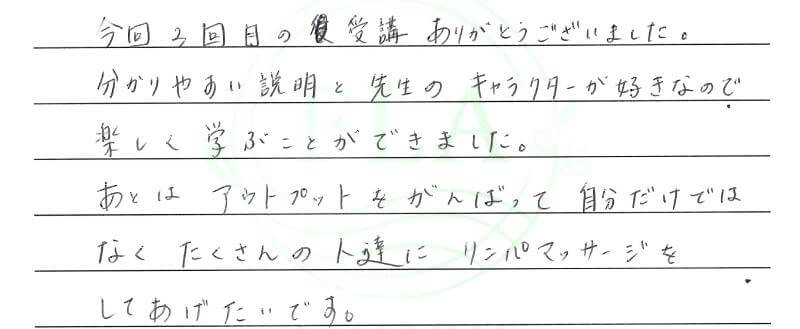 今回3回目の受講 ありがとうございました。
分かりやすい説明と先生のキャラクターが好きなので
楽しく学ぶことができました。
あとは アウトプットをがんばって 自分だけでは
なく たくさんの人達に リンパマッサージを
してあげたいです。
ELA